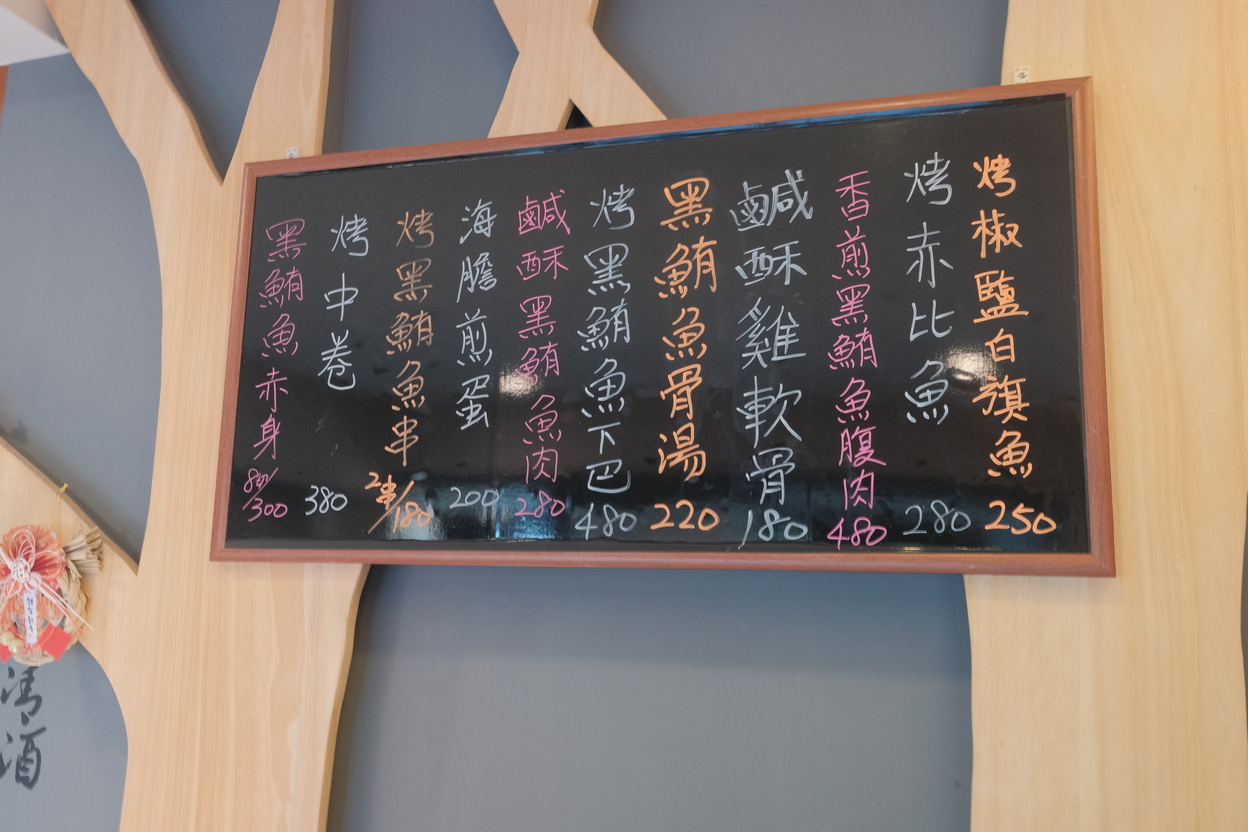 烤椒鹽白旗魚 250
烤赤比魚 280
香煎黑鮪魚腹肉 480
鹹酥雞軟骨 180
黑鮪魚骨湯 220
烤黑鮪魚下巴 480
鹹酥黑鮪魚肉 280
海膽煎蛋 200
烤黑鮪魚串 2串/180
烤中卷 380
黑鮪魚赤身 /300
清酒